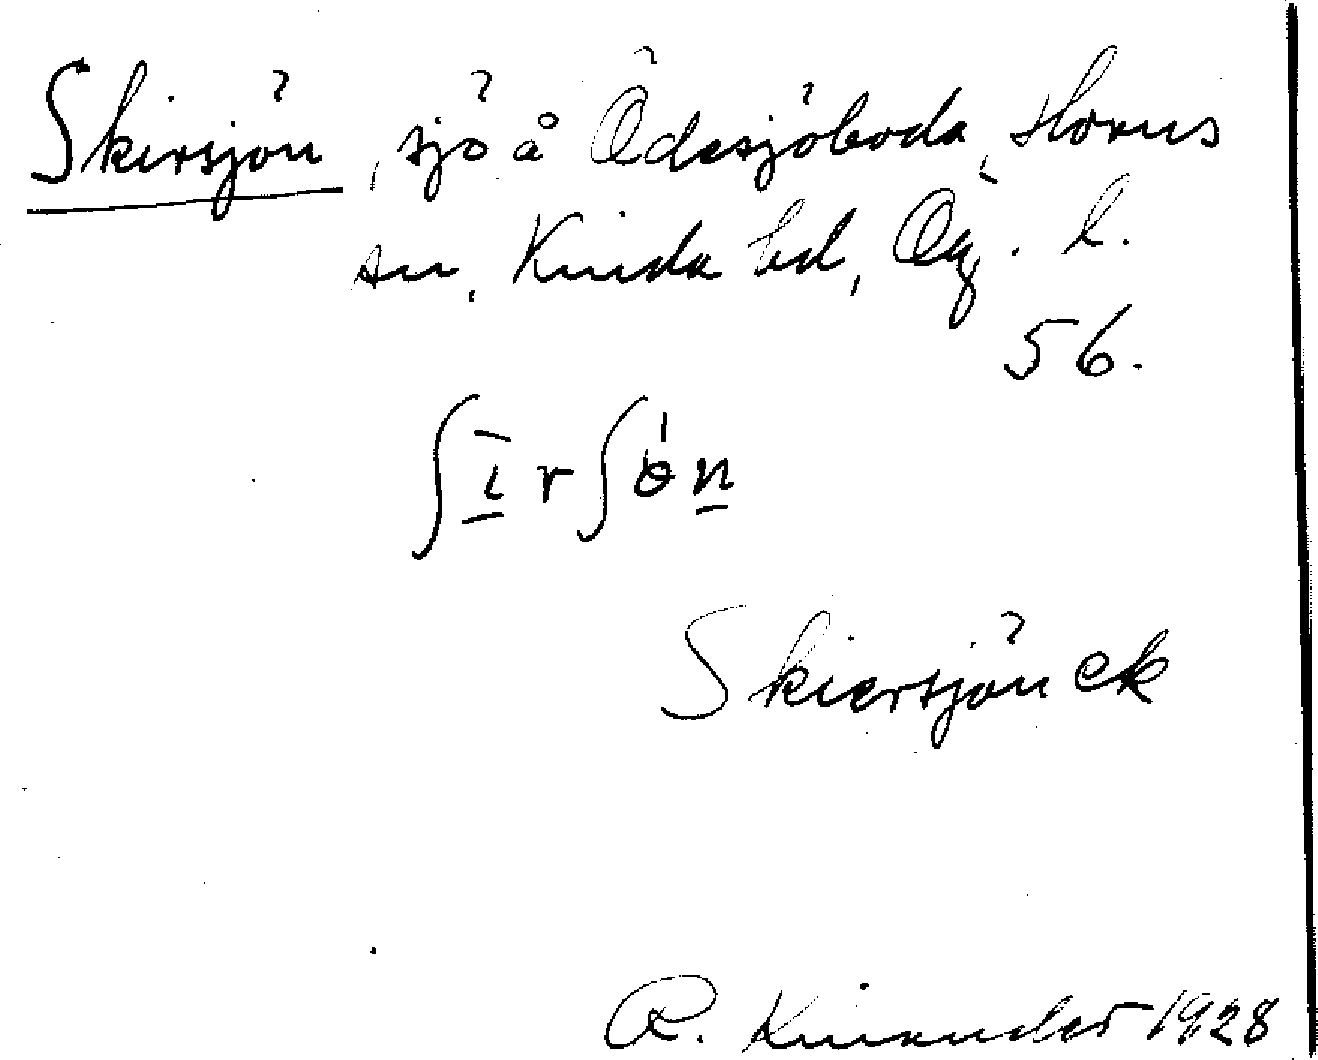 Skirsjön, sjö å Ödesjöboda, Horns
sn, Kinda hd, Ög. l.
56.
ʃī̱rʃɵ́n̠
Skiersjön ek
R. Kinander 1928